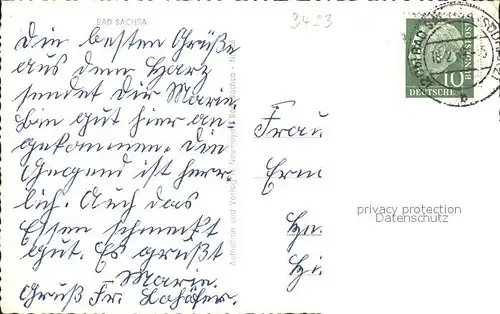 BAD SACHSA
3423
Die besten Grüße
aus dem Harz
sendet dir Marie.
Bin gut hier an-
gekommen. Die
Gegend ist herr-
lich. Auch das
Essen schmeckt
gut. Es grüßt
Marie.
Gruß Fr. Lohöfer.
Aufnahme und Verlag
Bad Sachsa
10
BUNDESPOST
DEUTSCHE
BAD
Frau
Erm
Ha.
Hi
privacy protection
Datenschutz